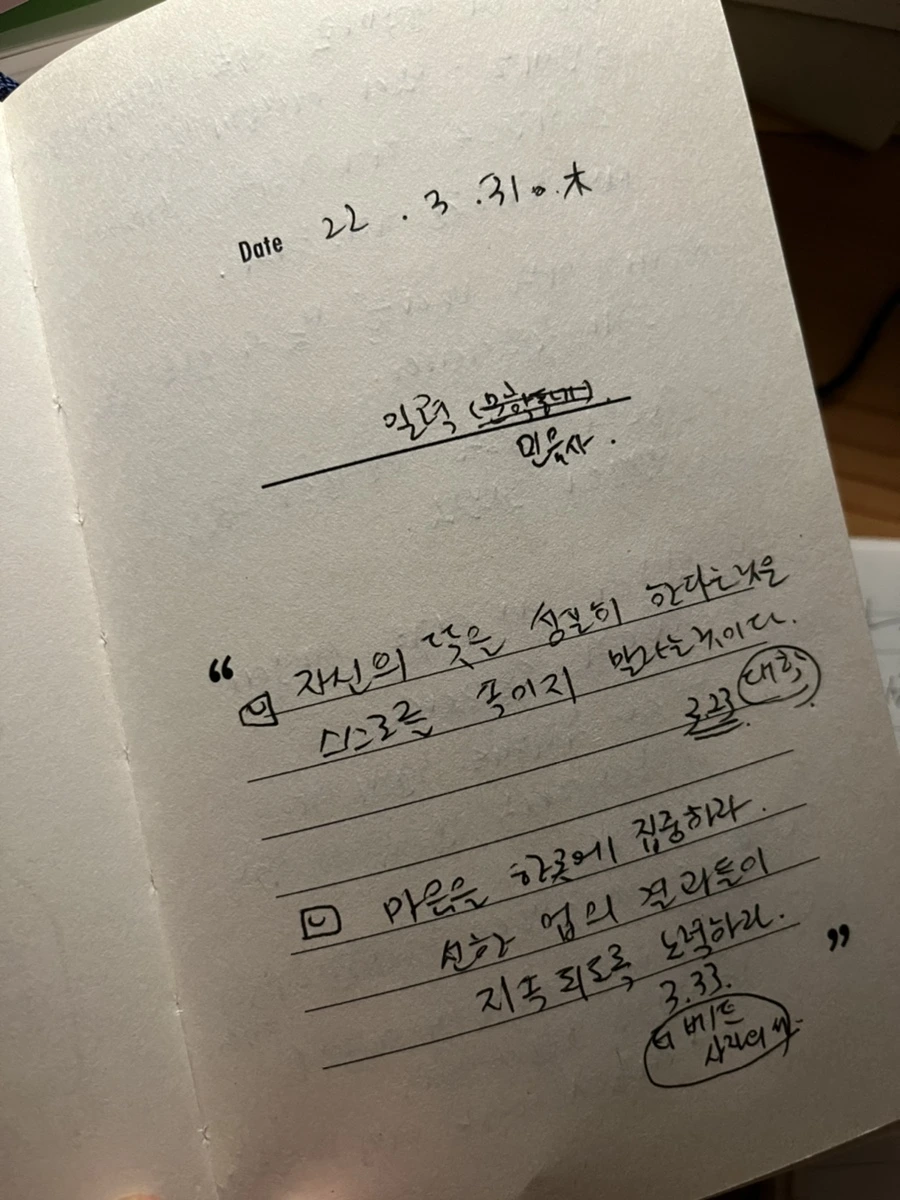 Date 22 . 3 . 31 . 木
일력 (문학동네).
민음사.
“
자신의 뜻을 성실히 한다는것은
스스로를 속이지 말라는것이다.
3.23. 대학
마음을 한곳에 집중하라.
선한 업의 결과들이
지속되도록 노력하라.
”
3.33.
티베트
사자의 서